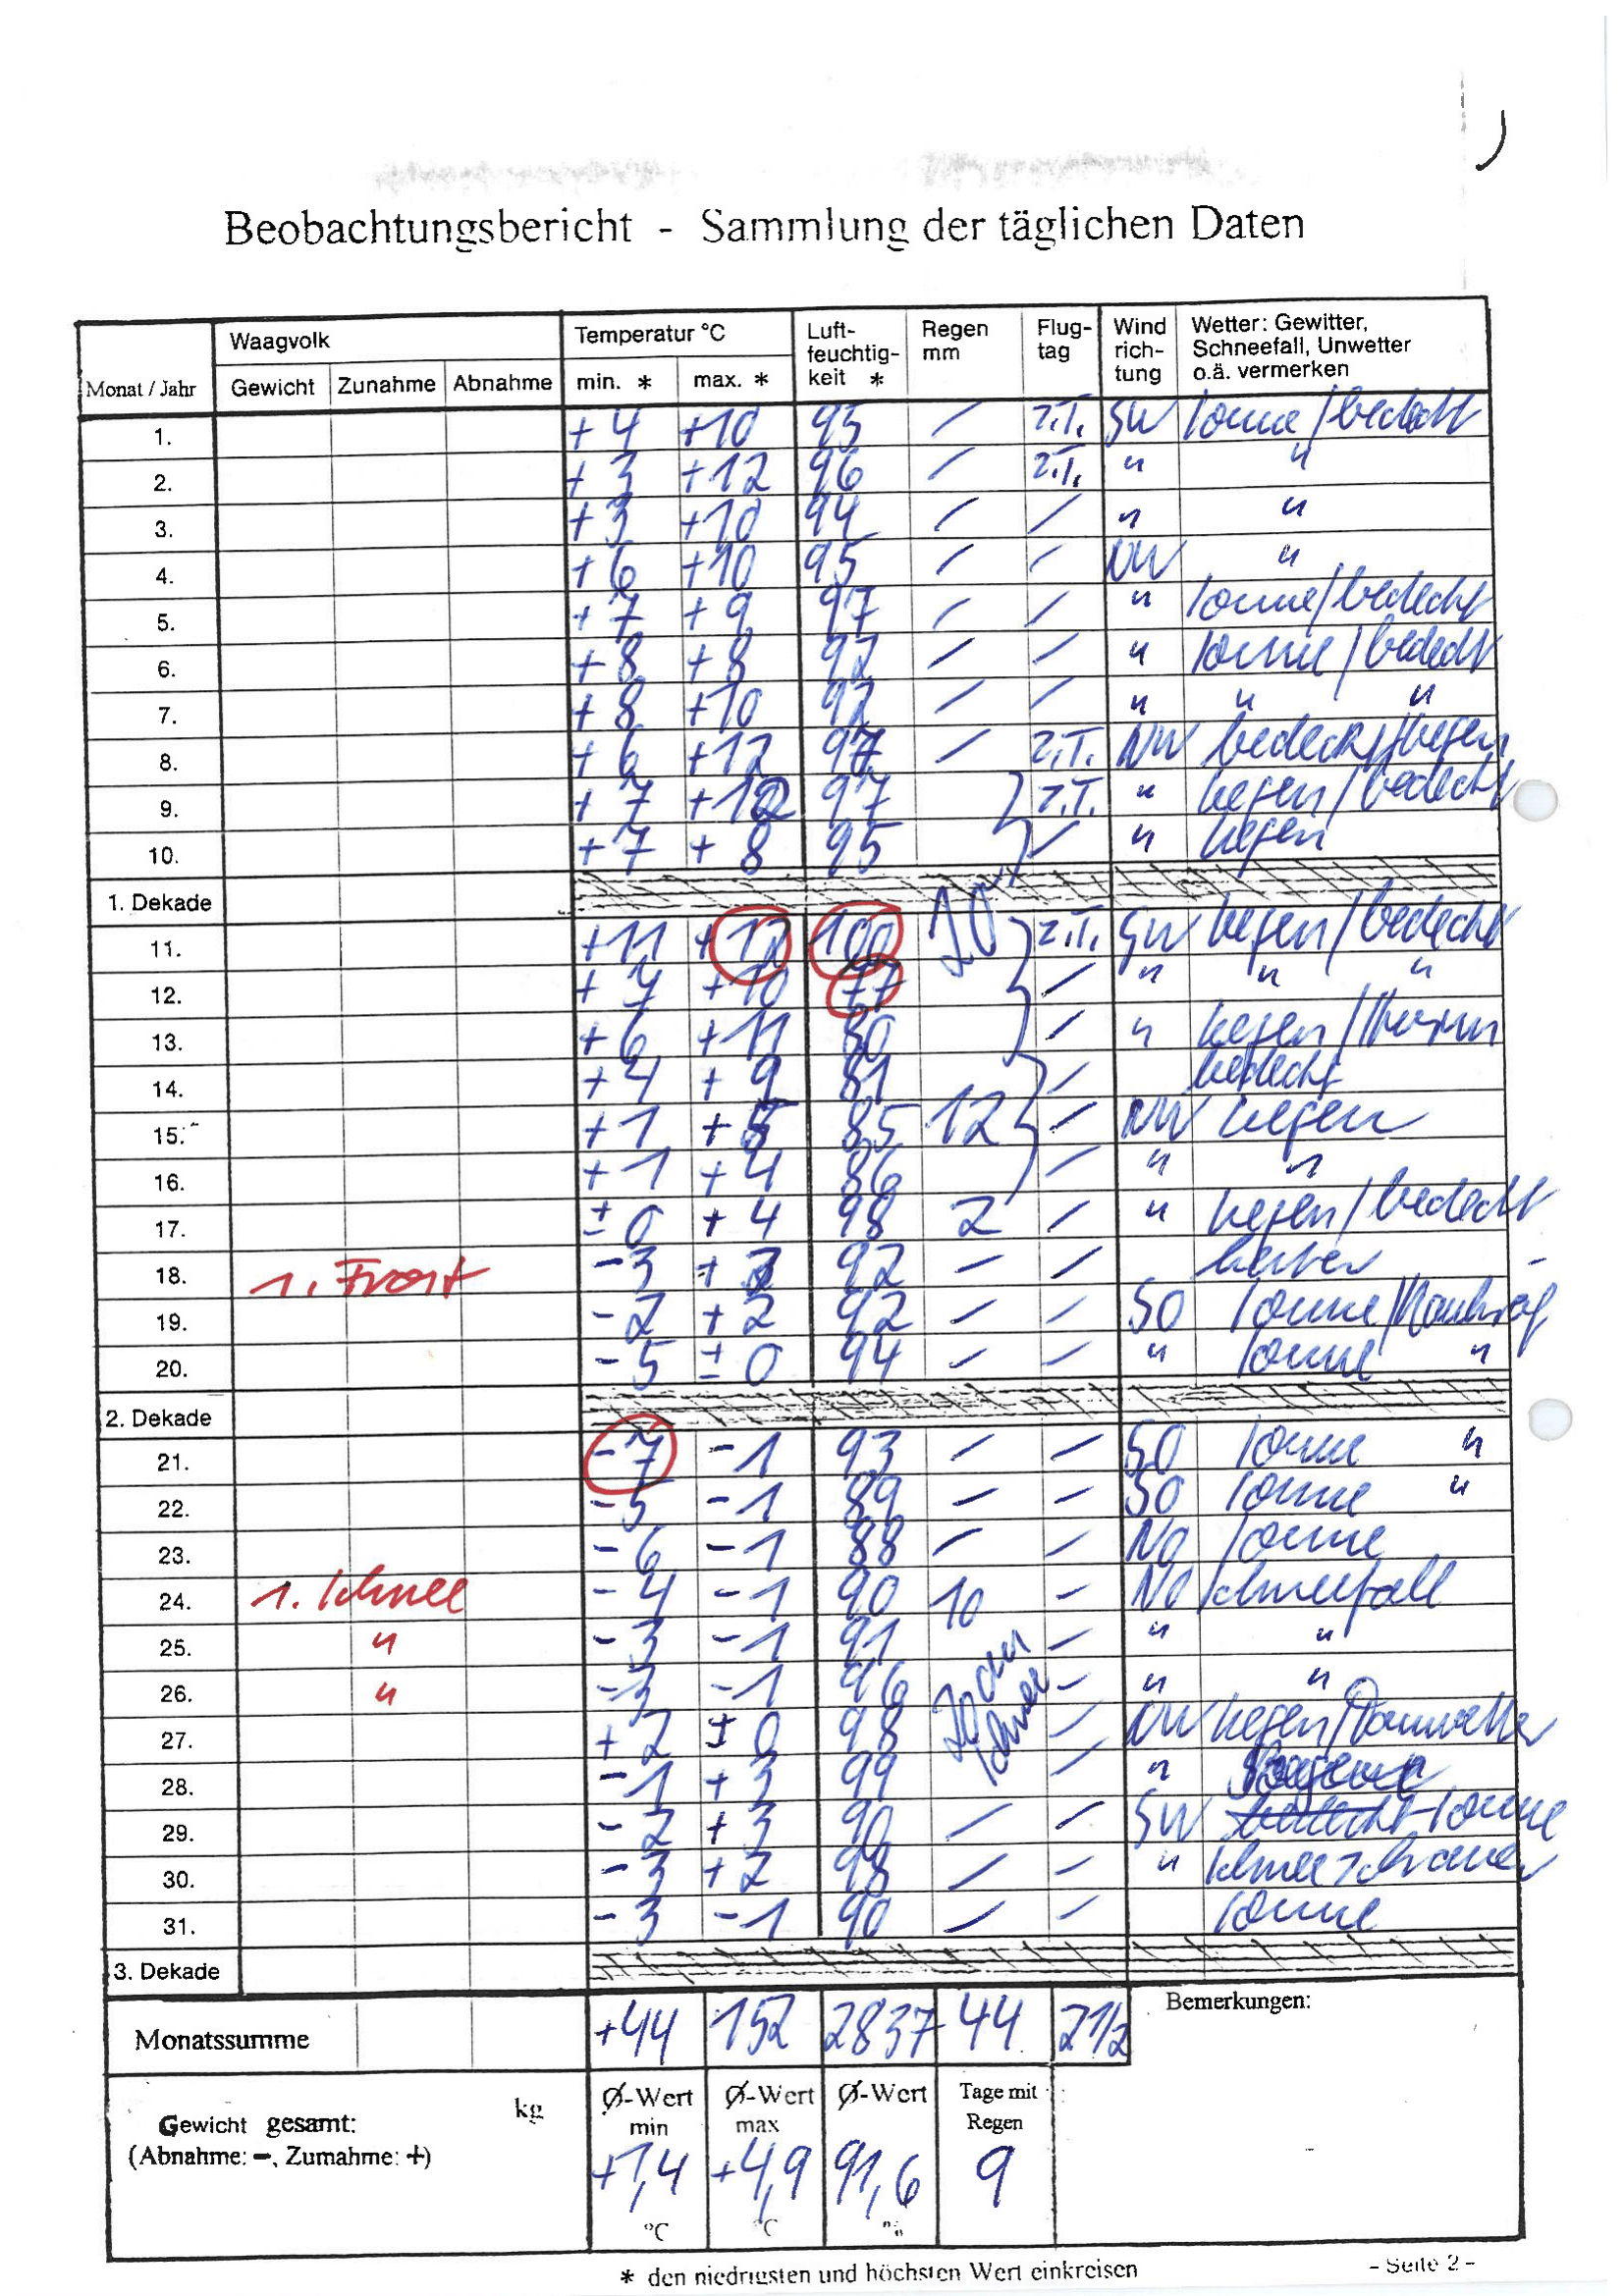 Beobachtungsbericht - Sammlung der täglichen Daten
Monat / Jahr Waagvolk Temperatur °C Luft-feuchtig-keit * Regen mm Flug-tag Wind rich-tung Wetter: Gewitter, Schneefall, Unwetter o.ä. vermerken
Gewicht Zunahme Abnahme min. * max. *
1. +4 +10 95 / z.T. SW Sonne/bedeckt
2. +3 +12 96 / z.T. " "
3. +3 +10 94 / / " "
4. +6 +10 95 / / NW "
5. +7 +9 97 / / " Sonne/bedeckt
6. +8 +8 92 / / " Sonne/bedeckt
7. +8 +10 92 / / " " "
8. +6 +12 97 / z.T. NW bedeckt/Regen
9. +7 97 z.T. " Regen/bedeckt
10. +7 +8 95 / " Regen
1. Dekade
11. +11 +12 100 20 z.T. SW Regen/bedeckt
12. +7 +10 77 / " " "
13. +6 +11 80 / " Regen/Sturm
14. +4 +9 81 / bedeckt
15. +1 +5 85 12 / NW Regen
16. +1 +4 86 / " "
17. ±0 +4 98 2 / " Regen/bedeckt
18. 1. Frost -3 92 - / heiter -
19. -2 +2 92 / / SO Sonne/Rauhreif
20. -5 ±0 94 / / " Sonne "
2. Dekade
21. -7 -1 93 / - SO Sonne "
22. -5 -1 89 - - SO Sonne "
23. -6 -1 88 - - NO Sonne
24. 1. Schnee -4 -1 90 10 - NO Schneefall
25. " -3 -1 91 - " "
26. " -3 -1 96 20 cm Schnee - " "
27. +2 ±0 98 / NW Regen/Tauwetter
28. -1 +3 99 / "
29. -2 +3 90 / - SW bedeckt Sonne
30. -3 +2 98 / - " Schneeschauer
31. -3 -1 90 / - Sonne
3. Dekade
Monatssumme +44 152 2837 44 21/2 Bemerkungen:
Gewicht gesamt: kg Ø-Wert min Ø-Wert max Ø-Wert Tage mit Regen
(Abnahme: -, Zumahme: +) +1,4 +4,9 91,6 9
°C °C %
* den niedrigsten und höchsten Wert einkreisen
- Seite 2 -